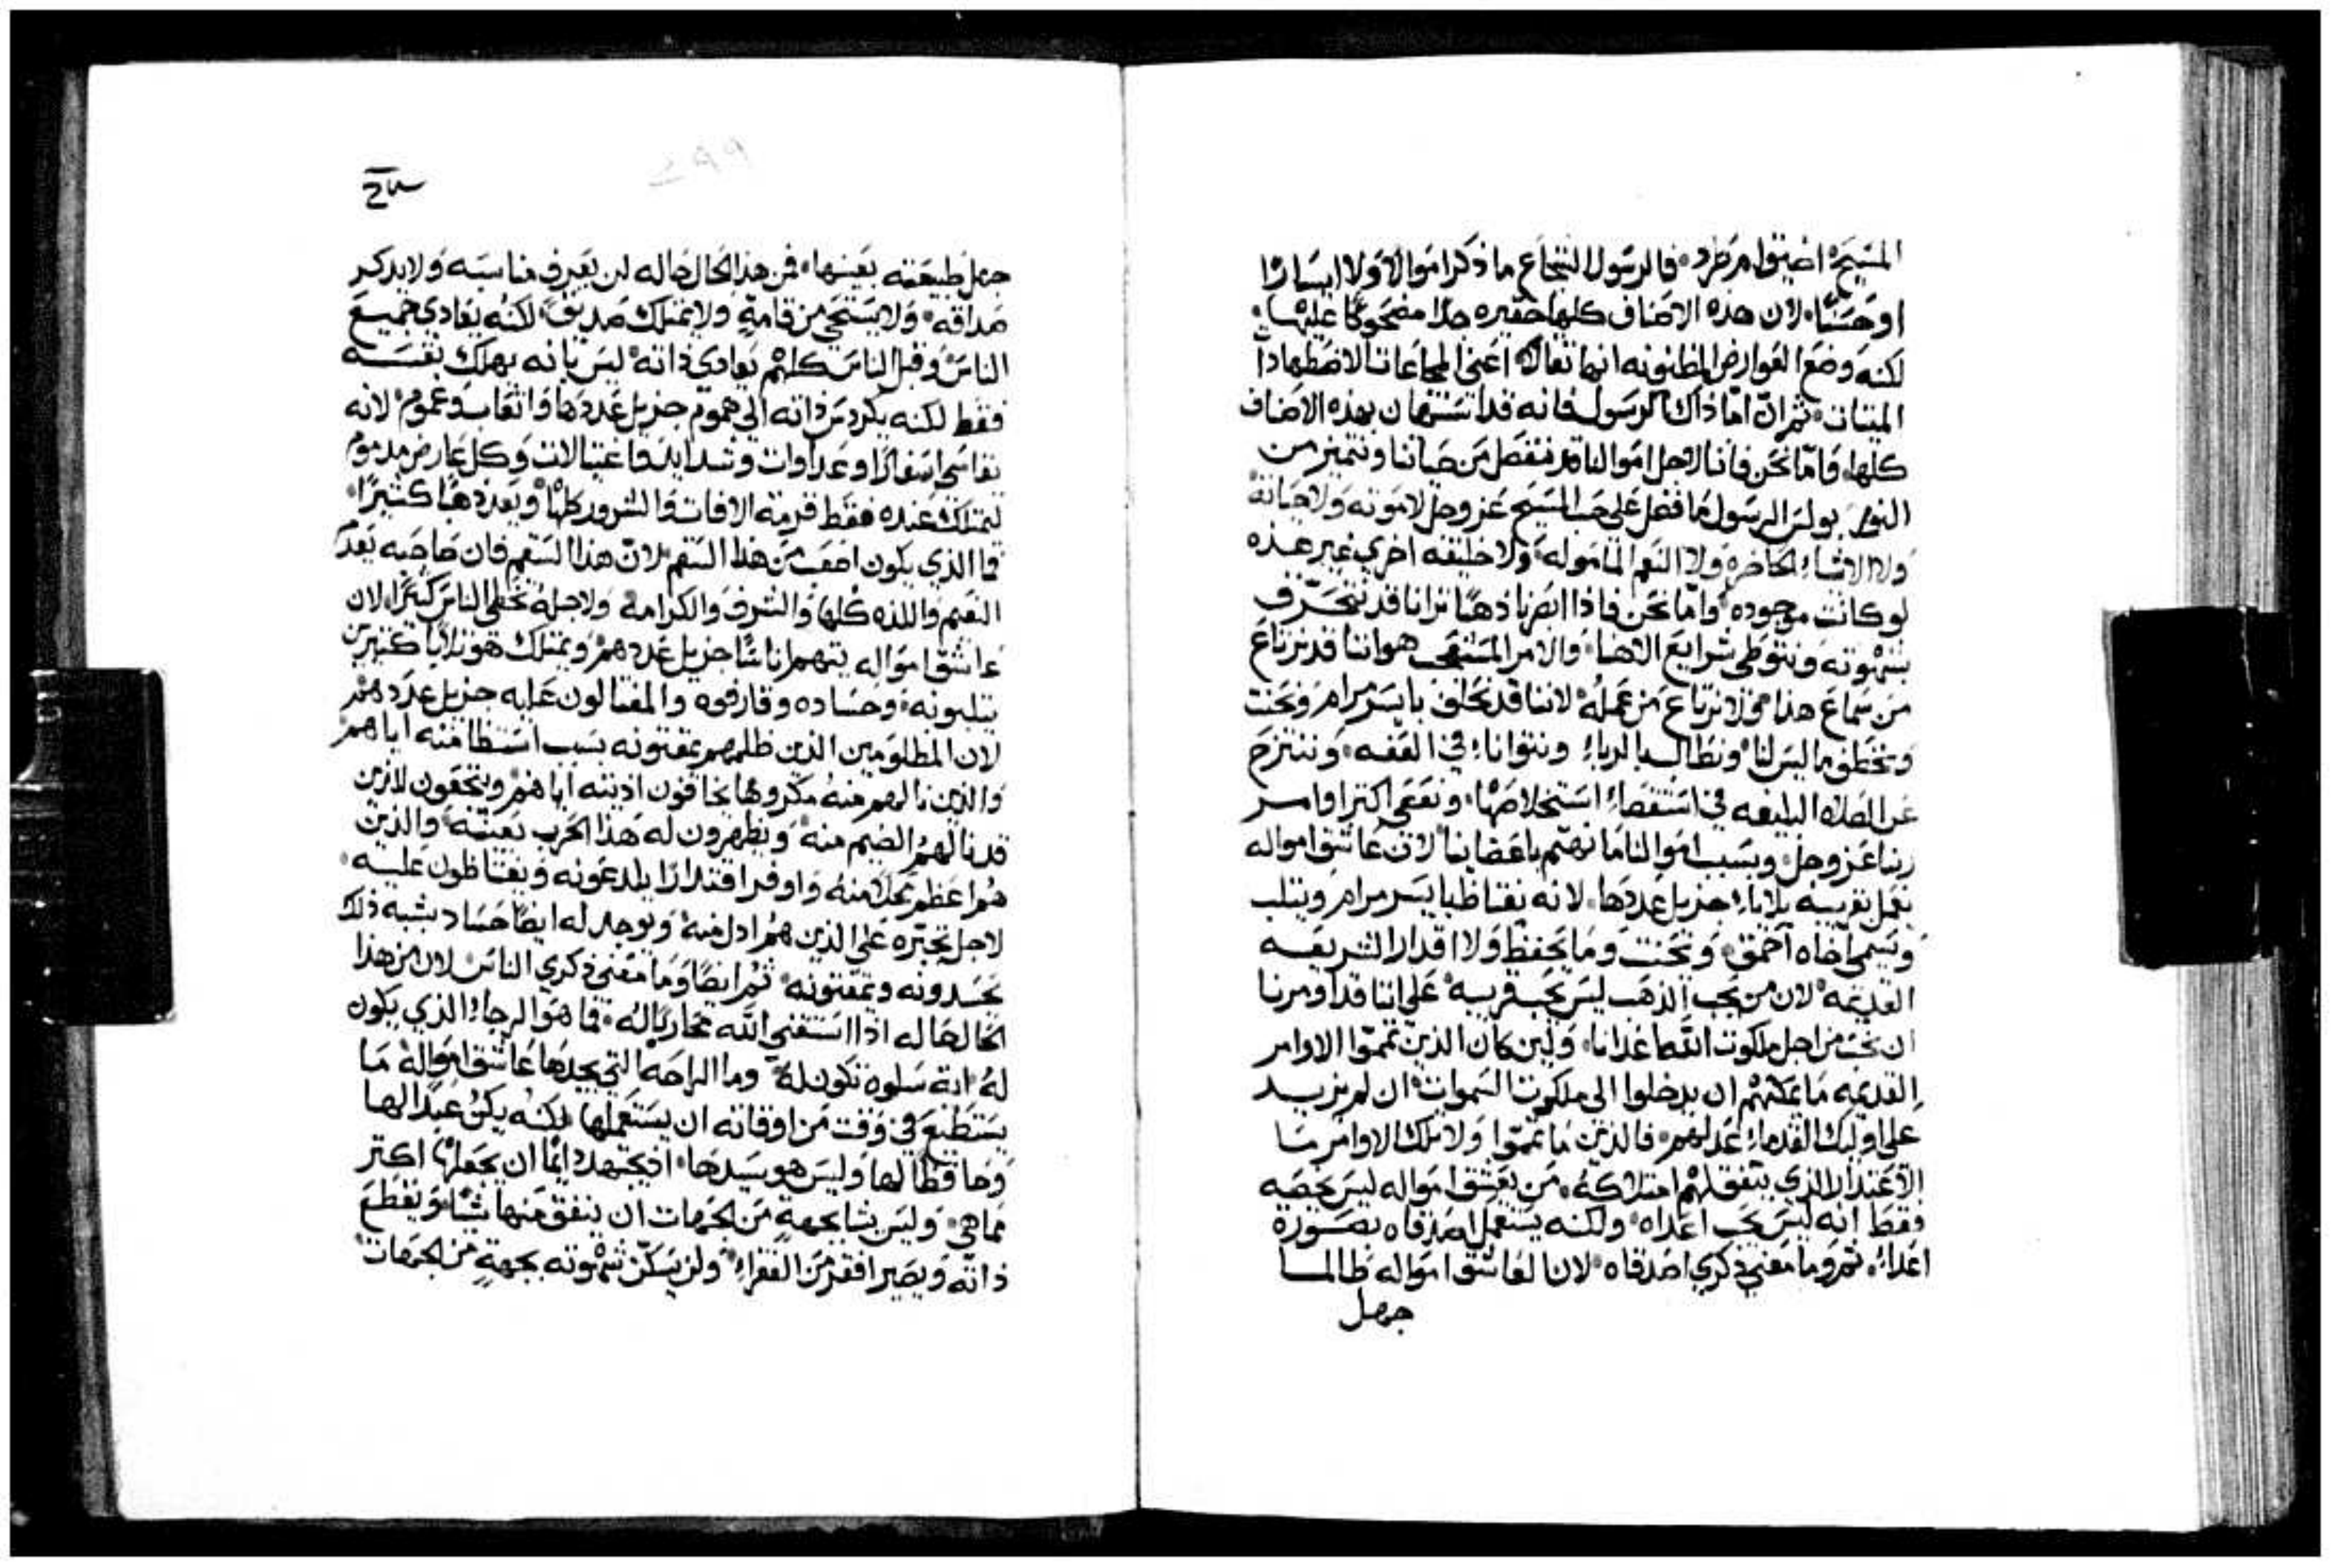 المسيح اضيق ام طرد فالرسول الشجاع ما ذكر اموالاً ولا ايساراً
او حسناً لان هذه الاصناف كلها حقيره جداً مضحوكاً عليها
لكنه وضع العوارض المظنونه انها ثقاله اعني المجاعات الاضطهادات
الميتات ثم ان اما ذاك الرسول فانه قد استهان بهذه الاصناف
كلها واما نحن فاننا لاجل اموالنا قد ننفصل من حياتنا ونتميز من
النور بولس الرسول ما فضل على حب المسيح عز وجل لا موته ولا حياته
ولا الاشياء الحاضره ولا النعم الماموله ولا خليقه اخري غير هذه
لو كانت موجوده واما نحن فاذا ابصرنا ذهباً ترانا قد نتحرق
بشهوته ونتوطي شرايع الاهنا والامر المستصعب هو اننا قد نرتاع
من سماع هذا ولا نرتاع من عمله لاننا قد نحلف بايسر مرام ونحنث
ونخطف ما ليس لنا ونطالب بالرباء ونتوانا في العفه وننتزح
عن الصلاه البليغه في استقصاء استخلاصها ونعصي اكثر اوامر
ربنا عز وجل وبسبب اموالنا ما نهتم باعضاينا لان عاشق امواله
يعمل بقريبه بلايا جزيل عددها لانه يغتاظ بايسر مرام ويثلب
ويسمي اخاه احمق ويحنث وما يحفظ ولا اقدار الشريعه
القديمه لان من يحب الذهب ليس يحب قريبه على اننا قد اومرنا
ان نحب من اجل ملكوت الله اعدانا ولين كان الذين تمموا الاوامر
القديمه ما يمكنهم ان يدخلوا الى ملكوت السموات ان لم يزيد
على اوليك القدماء عدلهم فالذين ما تمموا ولا تلك الاوامر ما
الاعتذار الذي يتفق لهم امتلاكه من يعشق امواله ليس يخصه
فقط انه ليس يحب اعداه ولكنه يستعمل اصدقاه بصورة
اعداء ثم وما معني ذكري اصدقاه لان العاشق امواله طالما
جهل
جهل طبيعته بعينها فمن هذا الحال حاله لن يعرف مناسبه ولا يذكر
صداقه ولا يستحي من قامه ولا يمتلك صديقاً لكنه يعادي جميع
الناس وقبل الناس كلهم يعادي ذاته ليس بانه يهلك نفسه
فقط لكنه يكردس ذاته الي هموم جزيل عددها واتعاب وغموم لانه
يقاسي اسفاراً وعداوات وشدايد واغتيالات وكل عارض مذموم
ليمتلك عنده فقط قرمة الافات والشرور كلها ويعد ذهباً كثيراً
فما الذي يكون اصعب من هذا السقم لان هذا السقم فان صاحبه يعدم
النعيم واللذه كلها والشرف والكرامه ولاجله تخطي الناس كثيراً لان
عاشق امواله يتهم اناساً جزيل عددهم ويمتلك هو بلايا كثيرين
يثلبونه وحساده وقارفوه والمغتالون عليه جزيل عددهم
لان المظلومين الذين ظلمهم يمقتونه بسبب استظامته اياهم
والذين نالهم منه مكروها يخافون اذيته اياهم ويتحققون لاذين
قد نالهم الضيم منه ويظهرون له هذا الحرب بعينه والذين
هم اعظم محلاً منه واوفر اقتداراً يلدعونه ويغتاظون عليه
لاجل تجبره على الذين هم ادل منه ويوجد له ايضاً حساد يشبه ذلك
يحسدونه ويمقتونه ثم ايضاً وما معني ذكري الناس لان من هذا
الحال حاله اذا استقني الله محارباً له فما هو الرجاء الذي يكون
له اية سلوه تكون له وما الراحه التي يجدها عاشق امواله ما
يستطيع في وقت من اوقاته ان يستعملها لكنه يكن عبداً لها
وحافظاً لها وليس هو سيدها اذ يجتهد دايماً ان يجعلها اكثر
مما هي وليس يشا بجهه من الجهات ان ينفق منها شياً ويقطع
ذاته ويصير افقر من الفقراء ولن يسكن شهوته بجهة من الجهات